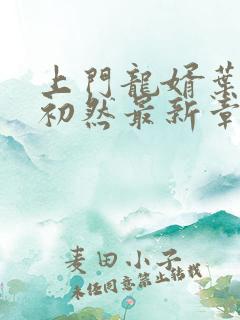 上門龍婿葉
初然最新章
麦田小子
未经同意禁止转载